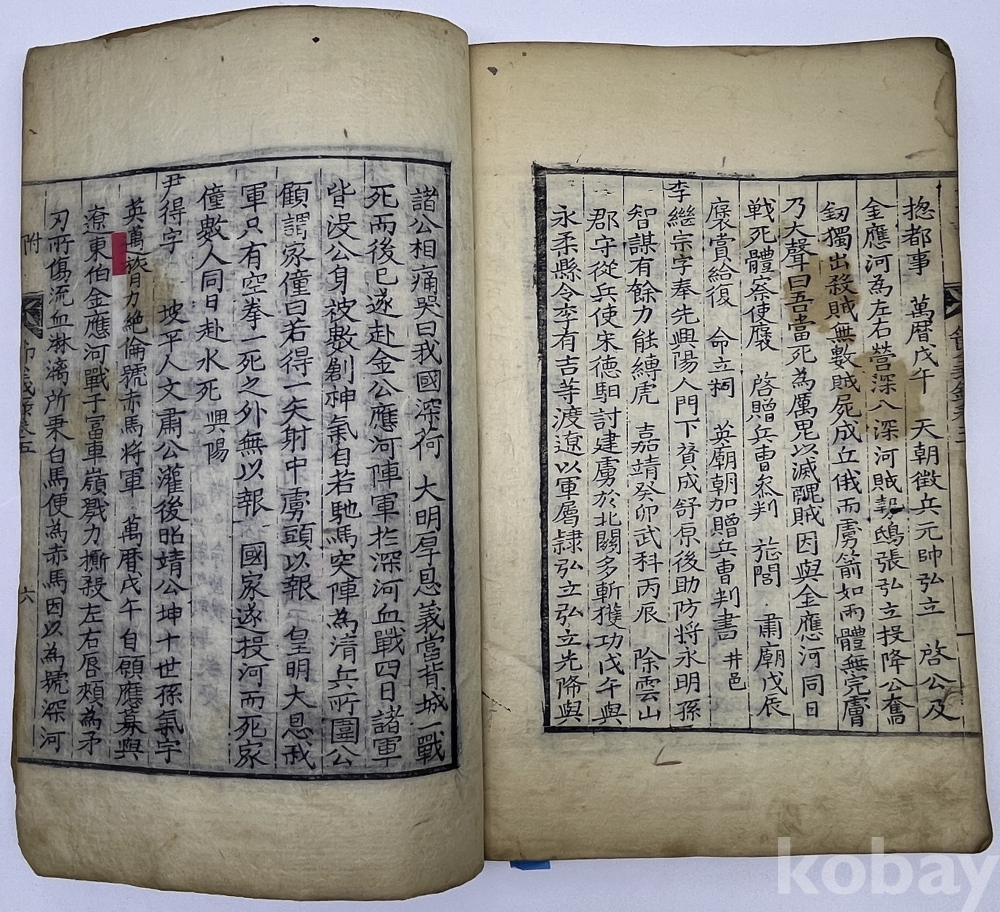 捴都事 萬曆戊午 天朝徵兵元帥弘立 啓公及
金應河為左右營深入深河賊彀鴟張弘立投降公奮
釼獨出殺賊無數賊屍成丘俄而虜箭如雨體無完膚
乃大聲曰吾當死為厲鬼以滅醜賊因與金應河同日
戰死體察使褒 啓贈兵曹參判 㫌閭 肅廟戊辰
褒賞給復 命立祠 英廟朝加贈兵曹判書 井邑
李繼宗字奉先興陽人門下贊成舒原後助防將永明孫
智謀有餘力能縛虎 嘉靖癸卯武科丙辰 除雲山
郡守從兵使宋德馹討建虜於北關多斬獲功戊午與
永柔縣令李有吉等渡遼以軍屬隷弘立弘立先降與
諸公相痛哭曰我國深荷 大明厚恩義當背城一戰
死而後已遂赴金公應河陣軍扵深河血戰四日諸軍
皆沒公身被數創神氣自若馳馬突陣為清兵所圍公
顧謂家僮曰若得一矢射中虜頭以報 皇明大恩我
軍只有空拳一死之外無以報 國家遂投河而死家
僮數人同日赴水死 興陽
尹得字 坡平人文肅公瓘後昭靖公坤十世孫氣宇
英萬旅力絶倫號赤馬將軍 萬曆戊午自願應募與
遼東伯金應河戰于富車嶺戮力撕殺左右唇頰為矛
刃所傷流血淋漓所乘白馬便為赤馬因以為號深河
附
節義錄卷五
六
kobay